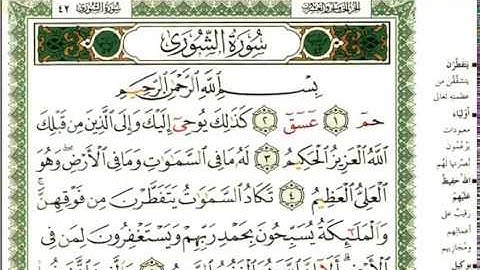 سُورَةُ الشُّورَى ٤٢
سُورَةُ الشُّورَىٰ
بِسْمِ اللَّهِ الرَّحْمَٰنِ الرَّحِيمِ
حمٓ ١ عٓسٓقٓ ٢ كَذَٰلِكَ يُوحِىٓ إِلَيْكَ وَإِلَى الَّذِينَ مِن قَبْلِكَ
اللَّهُ الْعَزِيزُ الْحَكِيمُ ٣ لَهُۥ مَا فِى السَّمَٰوَٰتِ وَمَا فِى الْأَرْضِ ۖ وَهُوَ
الْعَلِىُّ الْعَظِيمُ ٤ تَكَادُ السَّمَٰوَٰتُ يَتَفَطَّرْنَ مِن فَوْقِهِنَّ ۚ
وَالْمَلَٰٓئِكَةُ يُسَبِّحُونَ بِحَمْدِ رَبِّهِمْ وَيَسْتَغْفِرُونَ لِمَن فِى
يتفطرن
يتشققن من
عظمته تعالى
أولياء
معبودات
يزعمون
نصرتها لهم
الله حفيظ
عليهم
رقيب على